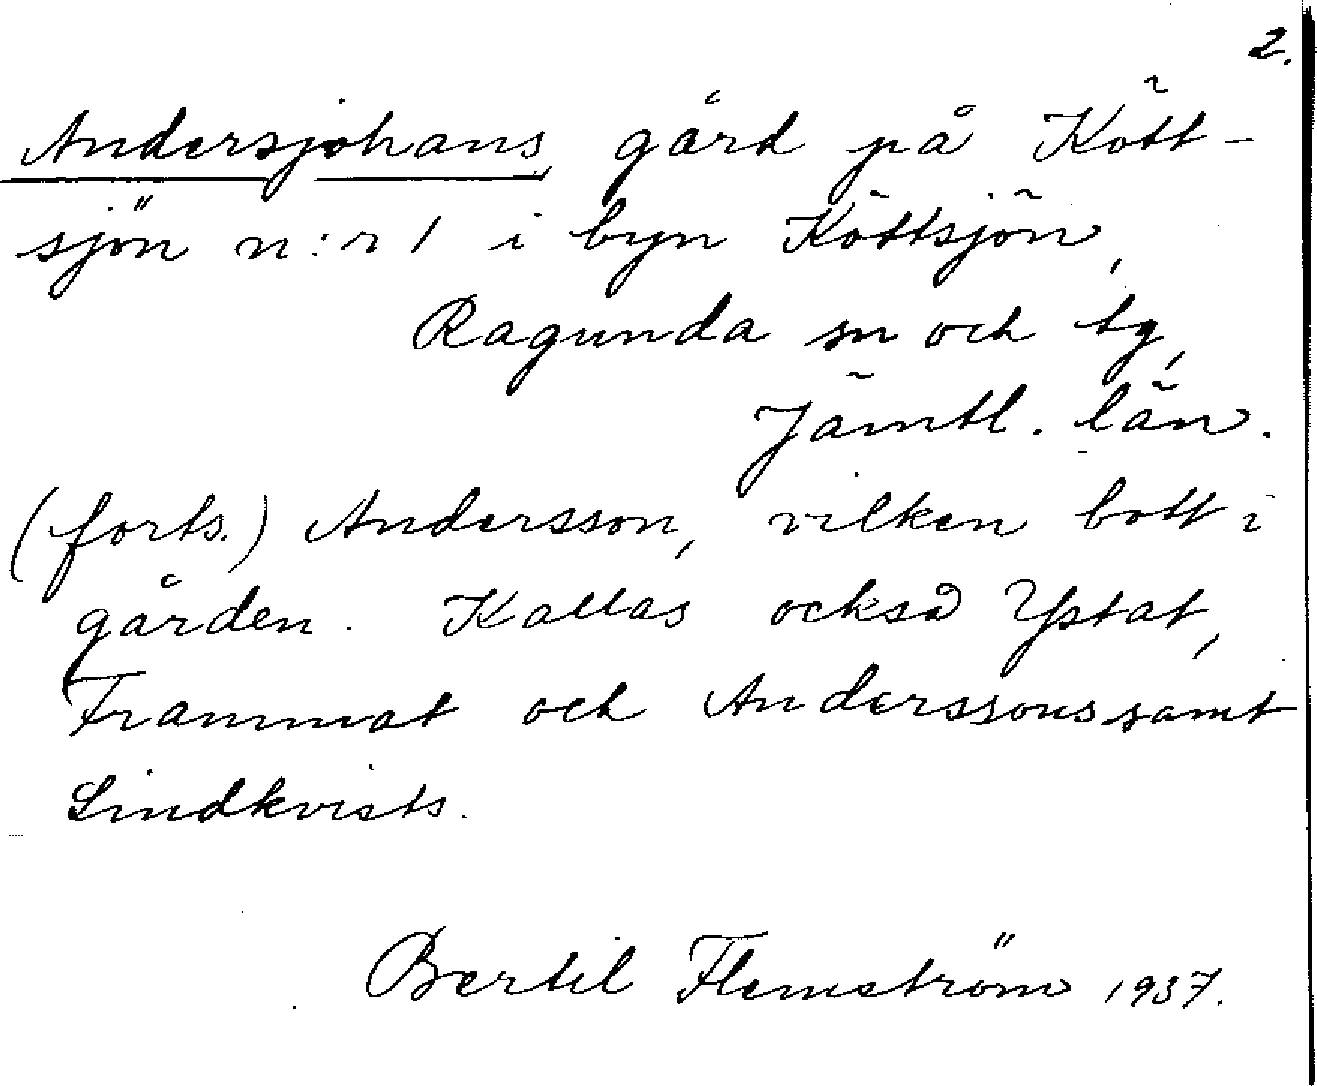 2.
Andersjohans, gård på Kött-
sjön n:r 1 i byn Köttsjön,
Ragunda sn och tg,
Jämtl. län.
(forts.) Andersson, vilken bott i
gården. Kallas också Ystat,
Frammat och Anderssons samt
Lindkvists.
Bertil Flemström 1937.